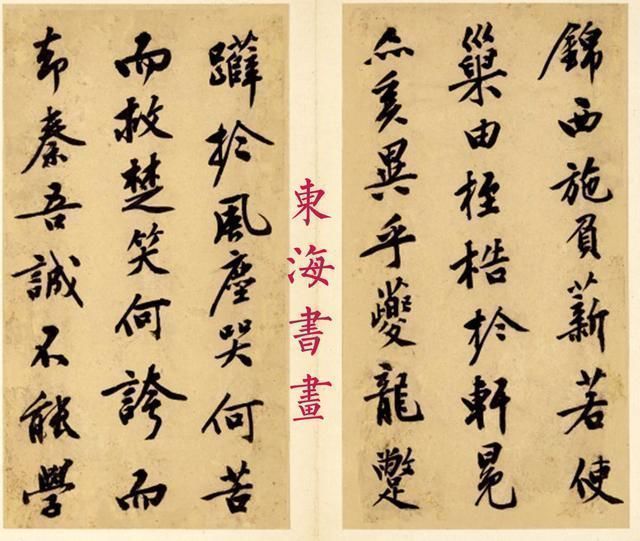 錦西施負薪若使
巢由桎梏於軒冕
亦奚異乎夔龍蹩
東海書畫
躠於風塵哭何苦
而救楚笑何誇而
却秦吾誠不能學